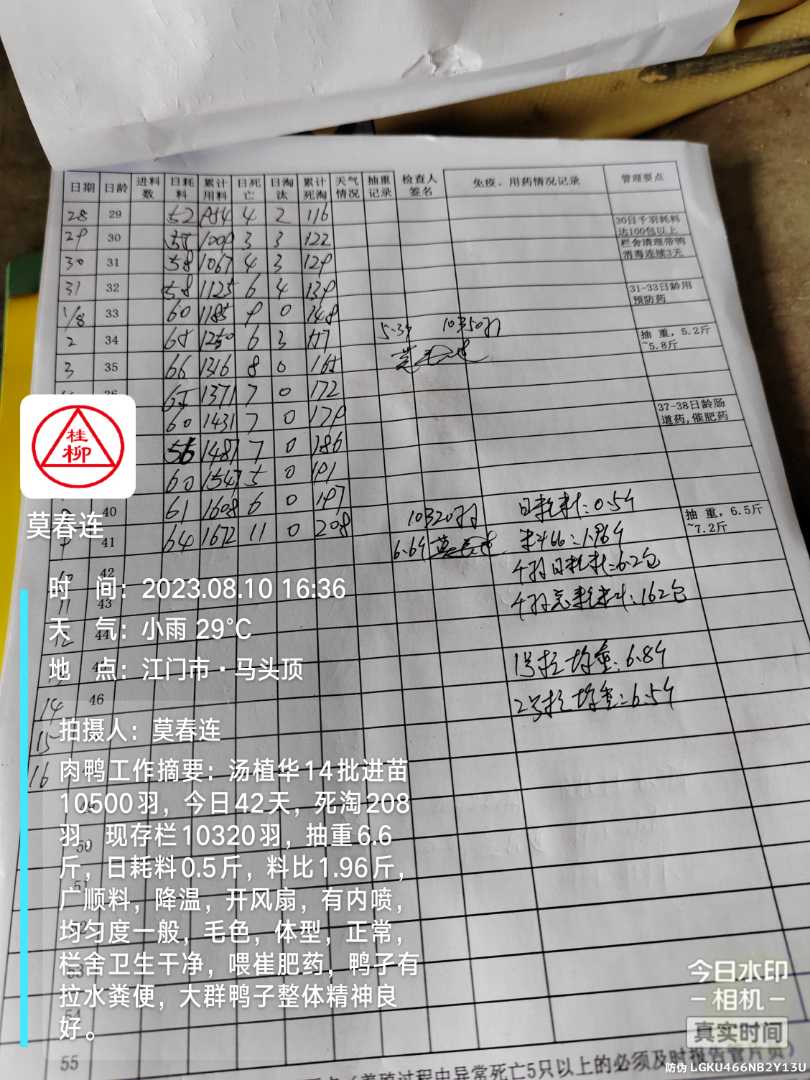 日期 日龄 进料数 日耗料 累计用料 日死亡 日淘汰 累计死淘 天气情况 抽重记录 检查人签名 免疫、用药情况记录 管理要点
28 29 52 954 4 2 116
29 30 55 1009 3 3 122 30日千羽耗料达100包以上
30 31 58 1067 4 3 129 栏舍清理带鸭消毒连续3天
31 32 58 1125 6 4 139 31-33日龄用预防药
1/8 33 60 1185 9 0 148
2 34 65 1250 6 3 157 5.3斤 10350羽 抽重,5.2斤~5.8斤
3 35 66 1316 8 0 165
1371 7 0 172
60 1431 7 0 179 37-38日龄肠道药,催肥药
56 1487 7 0 186
60 1547 5 0 191
40 61 1608 6 0 197 10320羽 日耗料:0.5斤 抽重,6.5斤~7.2斤
9 41 64 1672 11 0 208 6.6斤 料比:1.96斤
10 42 千羽日耗料:6.2包
11 43 千羽总耗料:162包
12 44
1号栏均重:6.8斤
14 46 2号栏均重:6.5斤
15
16
桂柳
莫春连
时 间:2023.08.10 16:36
天 气:小雨 29°C
地 点:江门市·马头顶
拍摄人:莫春连
肉鸭工作摘要:汤植华14批进苗
10500羽,今日42天,死淘208
羽,现存栏10320羽,抽重6.6
斤,日耗料0.5斤,料比1.96斤,
广顺料,降温,开风扇,有内喷,
均匀度一般,毛色,体型,正常,
栏舍卫生干净,喂崔肥药,鸭子有
拉水粪便,大群鸭子整体精神良
好。
53
54
55
今日水印
相机
真实时间
(养殖过程中异常死亡5只以上的必须及时报告管片员)
防伪 LGKU466NB2Y13U